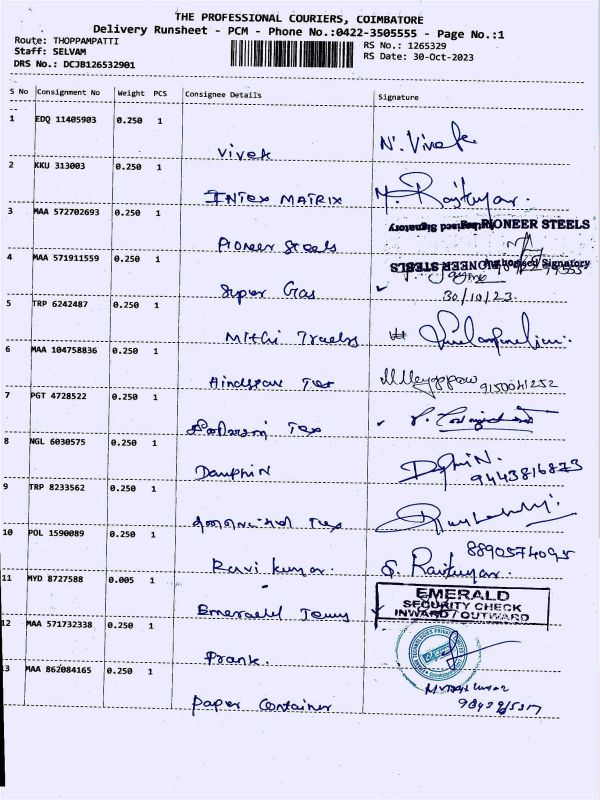 THE PROFESSIONAL COURIERS, COIMBATORE
Delivery Runsheet - PCM - Phone No.:0422-3505555 - Page No.:1
Route: THOPPAMPATTI
Staff: SELVAM
DRS No.: DCJB126532901
RS No.: 1265329
RS Date: 30-Oct-2023
S No Consignment No Weight PCS Consignee Details Signature
1 EDQ 11405903 0.250 1
Vivek N. Vivek
2 KKU 313003 0.250 1
INTEX MATRIX Rajkumar.
3 MAA 572702693 0.250 1
PIONEER STEELS
Authorised Signatory
Pioneer Steels
4 MAA 571911559 0.250 1
Authorised Signatory
PIONEER STEELS
Super Gas
30/10/23
5 TRP 6242487 0.250 1
Mithi
6 MAA 104758836 0.250 1
Hindustan Tex 9150041252
7 PGT 4728522 0.250 1
Tex
8 NGL 6030575 0.250 1
Dauphin
9443816873
9 TRP 8233562 0.250 1
Tex
10 POL 1590089 0.250 1
8890574095
Ravi kumar.
11 MYD 8727588 0.005 1
EMERALD
SECURITY CHECK
INWARD / OUTWARD
Emerald
12 MAA 571732338 0.250 1
Prank.
13 MAA 862084165 0.250 1
Paper Container